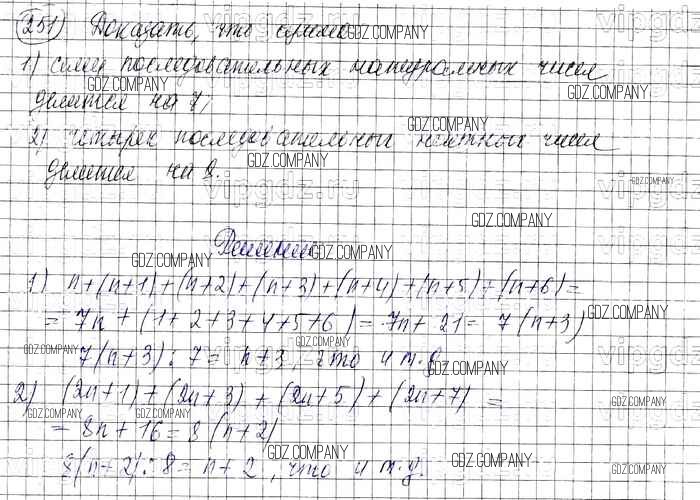 251) Доказать, что сумма GDZ.COMPANY
1) семи последовательных натуральных чисел
GDZ.COMPANY GDZ.COMPANY
делится на 7,
GDZ.COMPANY
2) четырех последовательных нечетных чисел
GDZ.COMPANY
делится на 8.
GDZ.COMPANY
vipgdz.ru
GDZ.COMPANY
Решение
GDZ.COMPANY GDZ.COMPANY
1) n+(n+1)+(n+2)+(n+3)+(n+4)+(n+5)+(n+6)=
= 7n + (1+2+3+4+5+6) = 7n + 21 = 7(n+3) GDZ.COMPANY
GDZ.COMPANY GDZ.COMPANY
7(n+3) : 7 = n+3, что и т.д.
GDZ.COMPANY
2) (2n+1)+(2n+3)+(2n+5)+(2n+7) =
GDZ.COMPANY GDZ.COMPANY GDZ.COMPANY
= 8n+16 = 8(n+2)
GDZ.COMPANY GDZ.COMPANY
8(n+2) : 8 = n+2, что и т.д.
GDZ.COMPANY